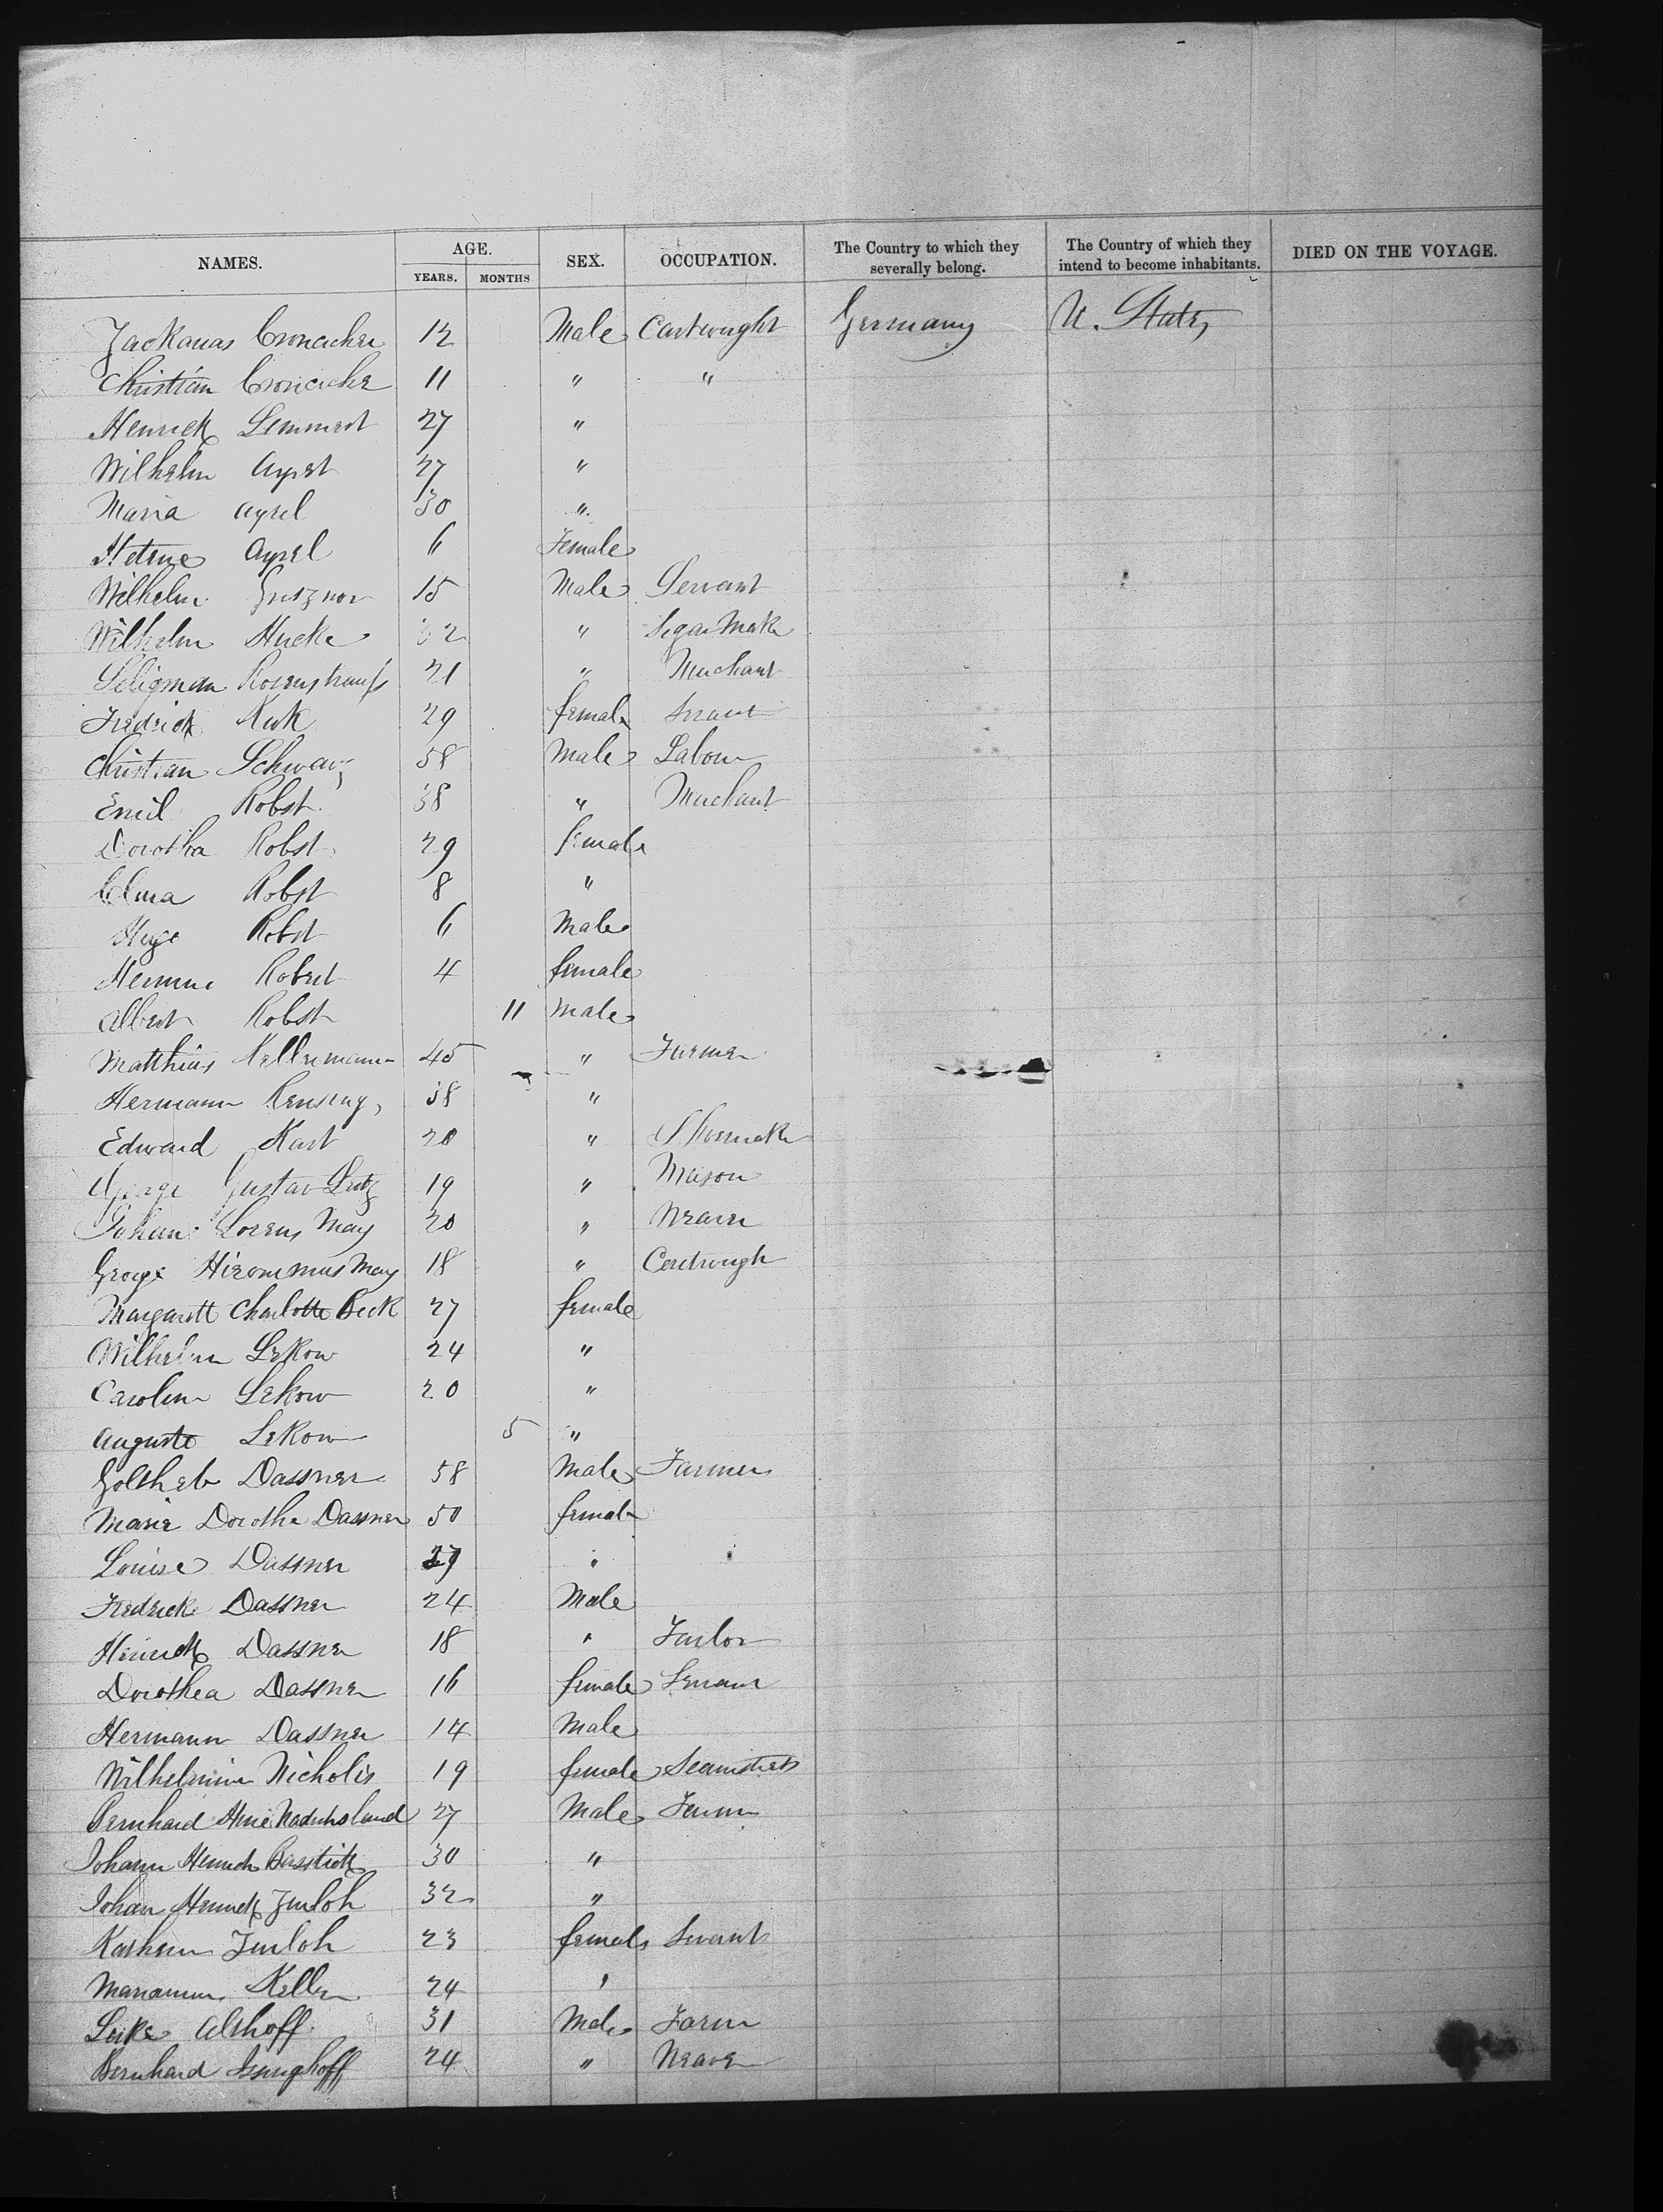 NAMES. AGE. YEARS. MONTHS SEX. OCCUPATION. The Country to which they severally belong. The Country of which they intend to become inhabitants. DIED ON THE VOYAGE.
Zackauas Cronacher 12 Male Cartwught Germany U. States
Christian Cronacher 11 " "
Henrick Lemmert 27 "
Wilhelm Ayrel 27 "
Maria Ayrel 30 "
Helene Ayrel 6 Female
Wilhelm 15 Male Servant
Wilhelm Hucke 32 " Segar Maker
Seligman Rosenstrauss 21 " Merchant
Fredrick 29 female Servant
Christian Schwarz 58 Male Labour
Emil Robst 38 " Merchant
Dorotha Robst 29 female
Robst 8 "
Hugo Robst 6 Male
Robst 4 female
Albert Robst 11 Male
Matthias Kellermann 45 " Farmer
Hermann 38 "
Edward Kast 20 " Shoemaker
George Gustav Lutz 19 " Mason
Johan Lorens May 20 " Weaver
George Hieronimus May 18 " Cartwrigh
Margarett Charlotte Beck 27 female
Wilhelm Lekow 24 "
Carolin Lekow 20 "
Auguste Lekow 5 "
Goltheb Dassner 58 Male Farmer
Marie Dorothe Dassner 50 female
Louise Dassner 27 "
Fredrick Dassner 24 Male
Heinrich Dassner 18 " Tailor
Dorothea Dassner 16 female Servant
Hermann Dassner 14 Male
Wilhelmine Nicholis 19 female Seamstress
Bernhard 27 Male Farmer
Johann Heinrich 30 "
Johan Heinrich Zurloh 32 "
Kathern Zurloh 23 female Servant
Keller 24 "
Althoff 31 Male Farm
Bernhard 24 " Weaver